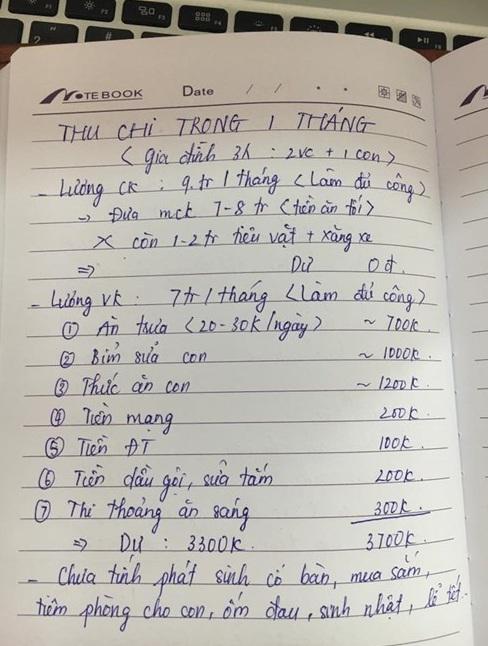 NOTEBOOK Date / / . .
THU CHI TRONG 1 THÁNG
< Gia đình 3k : 2vc + 1 con >
- Lương ck : 9.tr / tháng < Làm đủ công >
→ Đưa mck 7-8 tr < tiền ăn tối >
X còn 1-2 tr tiêu vặt + xăng xe
=> Dư 0 đ.
- Lương vk : 7 tr / tháng < Làm đủ công >
① Ăn trưa < 20 - 30k / ngày > ~ 700k.
② Bỉm sữa con ~ 1000k.
③ Thức ăn con ~ 1200k.
④ Tiền mạng 200k.
⑤ Tiền ĐT 100k.
⑥ Tiền dầu gội, sữa tắm 200k.
⑦ Thi thoảng ăn sáng 300k.
=> Dư : 3300k. 3700k.
- Chưa tính phát sinh cỗ bàn, mua sắm,
tiêm phòng cho con, ốm đau, sinh nhật, lễ tết.